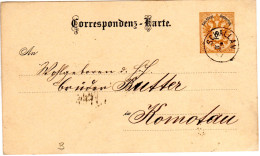 Correspondenz-Karte.
An
Wohlgeboren d. H.
Bruder Rutter
in Komotau